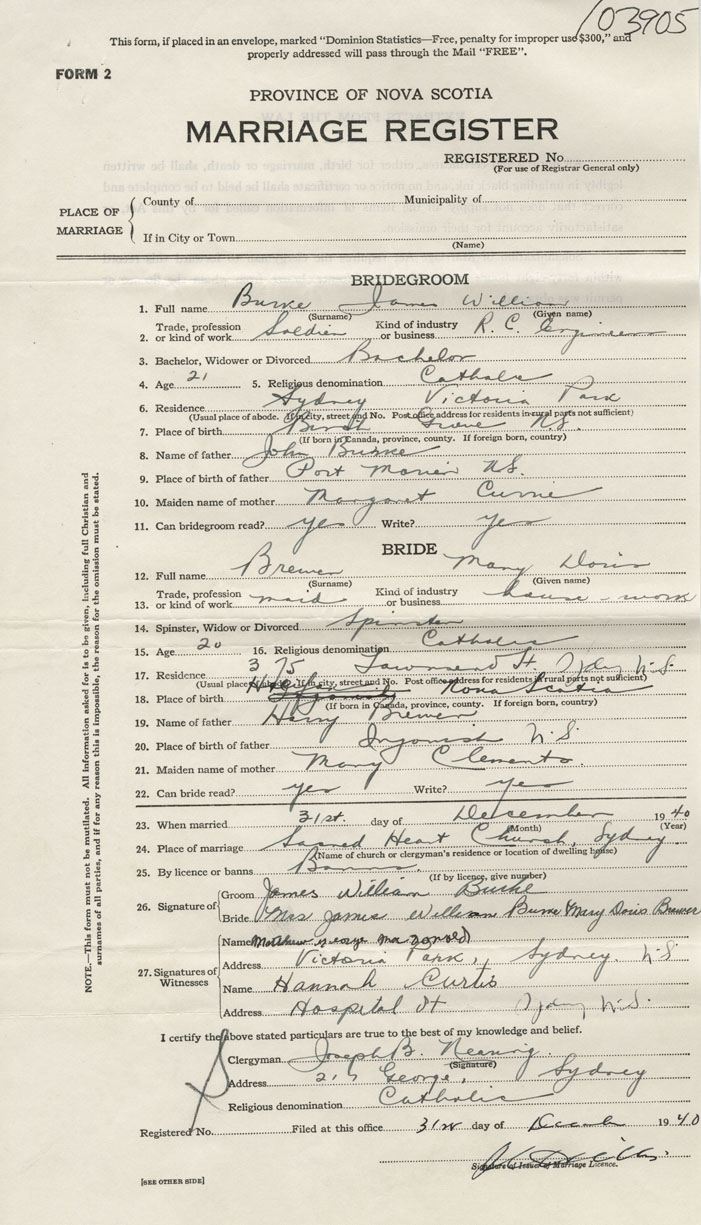 103905
This form, if placed in an envelope, marked "Dominion Statistics—Free, penalty for improper use $300," and
properly addressed will pass through the Mail "FREE".
FORM 2
PROVINCE OF NOVA SCOTIA
MARRIAGE REGISTER
REGISTERED No.
(For use of Registrar General only)
PLACE OF MARRIAGE
County of Municipality of
If in City or Town
(Name)
BRIDEGROOM
1. Full name Burke James William
(Surname) (Given name)
2. Trade, profession or kind of work Soldier Kind of industry or business R. C. Engineers
3. Bachelor, Widower or Divorced Bachelor
4. Age 21 5. Religious denomination Catholic
6. Residence Sydney Victoria Park
(Usual place of abode. If in city, street and No. Post office address for residents in rural parts not sufficient)
7. Place of birth Birch Grove N.S.
(If born in Canada, province, county. If foreign born, country)
8. Name of father John Burke
9. Place of birth of father Port Morien N.S.
10. Maiden name of mother Margaret Currie
11. Can bridegroom read? yes Write? yes
BRIDE
12. Full name Brewer Mary Doris
(Surname) (Given name)
13. Trade, profession or kind of work maid Kind of industry or business house-work
14. Spinster, Widow or Divorced Spinster
15. Age 20 16. Religious denomination Catholic
17. Residence 375 Townsend St. Sydney N.S.
(Usual place of abode. If in city, street and No. Post office address for residents in rural parts not sufficient)
18. Place of birth Nova Scotia
(If born in Canada, province, county. If foreign born, country)
19. Name of father Harry Brewer
20. Place of birth of father Ingonish N.S.
21. Maiden name of mother Mary Clements
22. Can bride read? yes Write? yes
23. When married 31st. day of December 1940
(Month) (Year)
24. Place of marriage Sacred Heart Church, Sydney
(Name of church or clergyman's residence or location of dwelling house)
25. By licence or banns Banns
(If by licence, give number)
26. Signature of
Groom James William Burke
Bride Mrs James William Burke Mary Doris Brewer
27. Signatures of Witnesses
Name Matthew MacDonald
Address Victoria Park, Sydney. N.S.
Name Hannah Curtis
Address Hospital St Sydney N.S.
I certify the above stated particulars are true to the best of my knowledge and belief.
Clergyman Joseph B.
(Signature)
Address George, Sydney
Religious denomination Catholic
Registered No. Filed at this office 31st day of Decemb 1940
Signature of Issuer of Marriage Licence.
[SEE OTHER SIDE]
NOTE.—This form must not be mutilated. All information asked for is to be given, including full Christian and
surnames of all parties, and if for any reason this is impossible, the reason for the omission must be stated.